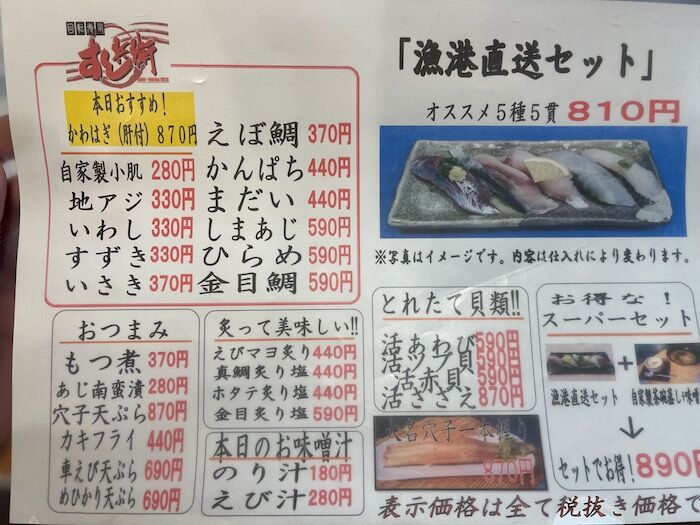 回転寿司
すし兵衛
本日おすすめ!
かわはぎ(肝付)870円
自家製小肌 280円
地アジ 330円
いわし 330円
すずき 330円
いさき 370円
えぼ鯛 370円
かんぱち 440円
まだい 440円
しまあじ 590円
ひらめ 590円
金目鯛 590円
「漁港直送セット」
オススメ5種5貫 810円
※写真はイメージです。内容は仕入れにより変わります。
おつまみ
もつ煮 370円
あじ南蛮漬 280円
穴子天ぷら 870円
カキフライ 440円
車えび天ぷら 690円
めひかり天ぷら 690円
炙って美味しい!!
えびマヨ炙り 440円
真鯛炙り塩 440円
ホタテ炙り塩 440円
金目炙り塩 590円
本日のお味噌汁
のり汁 180円
えび汁 280円
とれたて貝類!!
活あわび 590円
活ツブ貝 590円
活赤貝 590円
活さざえ 870円
大名穴子一本握り
870円
お得な!
スーパーセット
+
漁港直送セット
自家製茶碗蒸し+味噌
↓
セットでお得!890円
表示価格は全て税抜き価格で